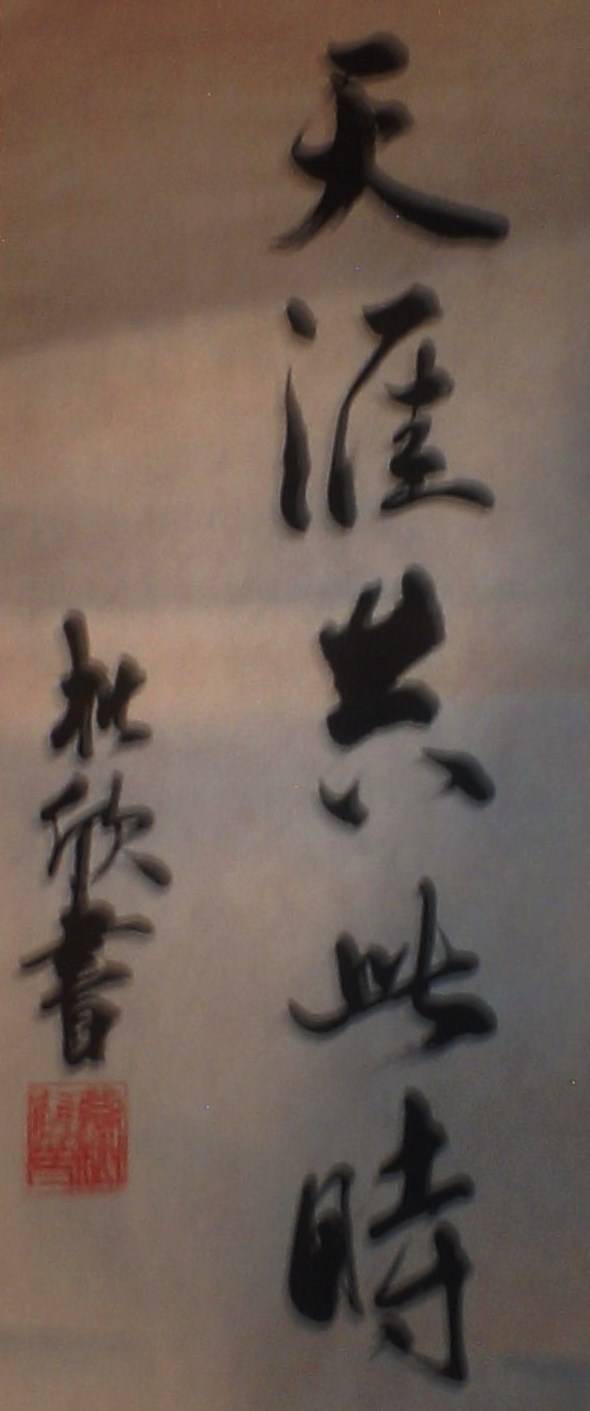 天涯共此時
松欣書